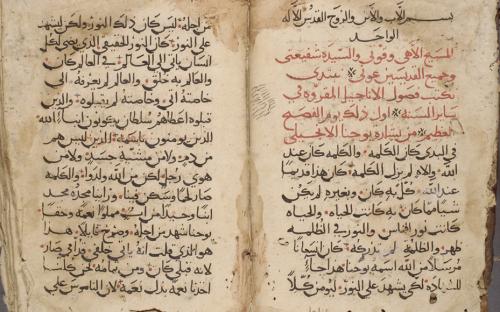 بسم الاب والابن والروح القدس الاله
الواحد
المسيح الاهي وقوتي والسيدة شفيعتي
وجميع القديسين عوني * نبتدي
بكتب فصول الاناجيل المقروه في
ساير السنه * اول ذلك يوم الفصح
العظيم * من بشارة يوحنا الانجيلي
في البدي كان الكلمه * والكلمه كان عند
الله * والاه لم يزل الكلمه * كان هذا قديمًا
عند الله * كلٌّ به كان * وبغيره لم يكن
شيًا مما كان * به كانت الحياه * والحياه
كانت نور الناس * والنور في الظلمه
ظهر * والظلمه لم تدركه * كان انسانًا
مرسلًا من الله اسمه يوحنا هذا جا
للشهادة * لكي يشهد على النور * ليومن كلًّا
من اجله * ليس كان ذلك النور * ولكن ليشهد
على النور * كان النور الحقيقي الذي يضي لكل
انسان ياتي الى العالم * في العالم كان
والعالم به خلق * والعالم لم يعرفه * الى
خاصته اتى * وخاصته لم يقبلوه * والذين
قبلوه اعطاهم سلطان يكونون ابناء الله *
الذين يومنون باسمه * الذين ليس هم
من دم * ولا من مشية جسد * ولا من
هوى رجل * لكن من الله ولدوا * والكلمه
صار لحمًا وسكن فينا * وراينا مجده مجد
ابنًا وحيدًا من اب * مملوًا نعمة وحقًا *
يوحنا شهد من اجله * وصرخ قايلًا * هذا
هو الذي قلت انه ياتي خلفي * صار
لانه قبلي كان * ومن تمامه نحن كلنا
اخذنا نعمة بدل نعمة * لان الناموس على